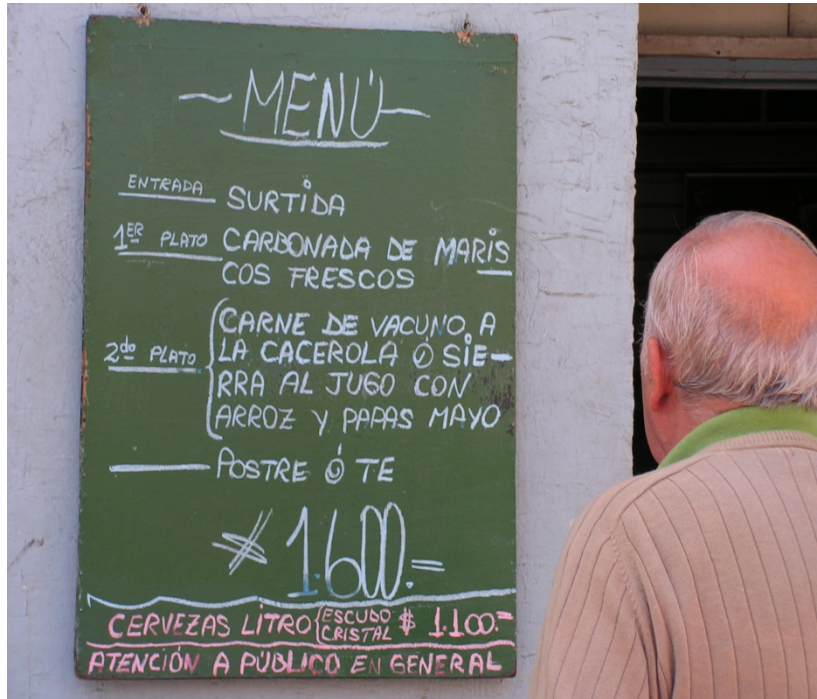 MENÚ
ENTRADA SURTIDA
1ER PLATO CARBONADA DE MARIS
COS FRESCOS
CARNE DE VACUNO A
2do PLATO LA CACEROLA Ó SIE-
RRA AL JUGO CON
ARROZ Y PAPAS MAYO
POSTRE Ó TE
$ 1.600.=
CERVEZAS LITRO { ESCUDO $ 1.100.=
CRISTAL
ATENCIÓN A PÚBLICO EN GENERAL